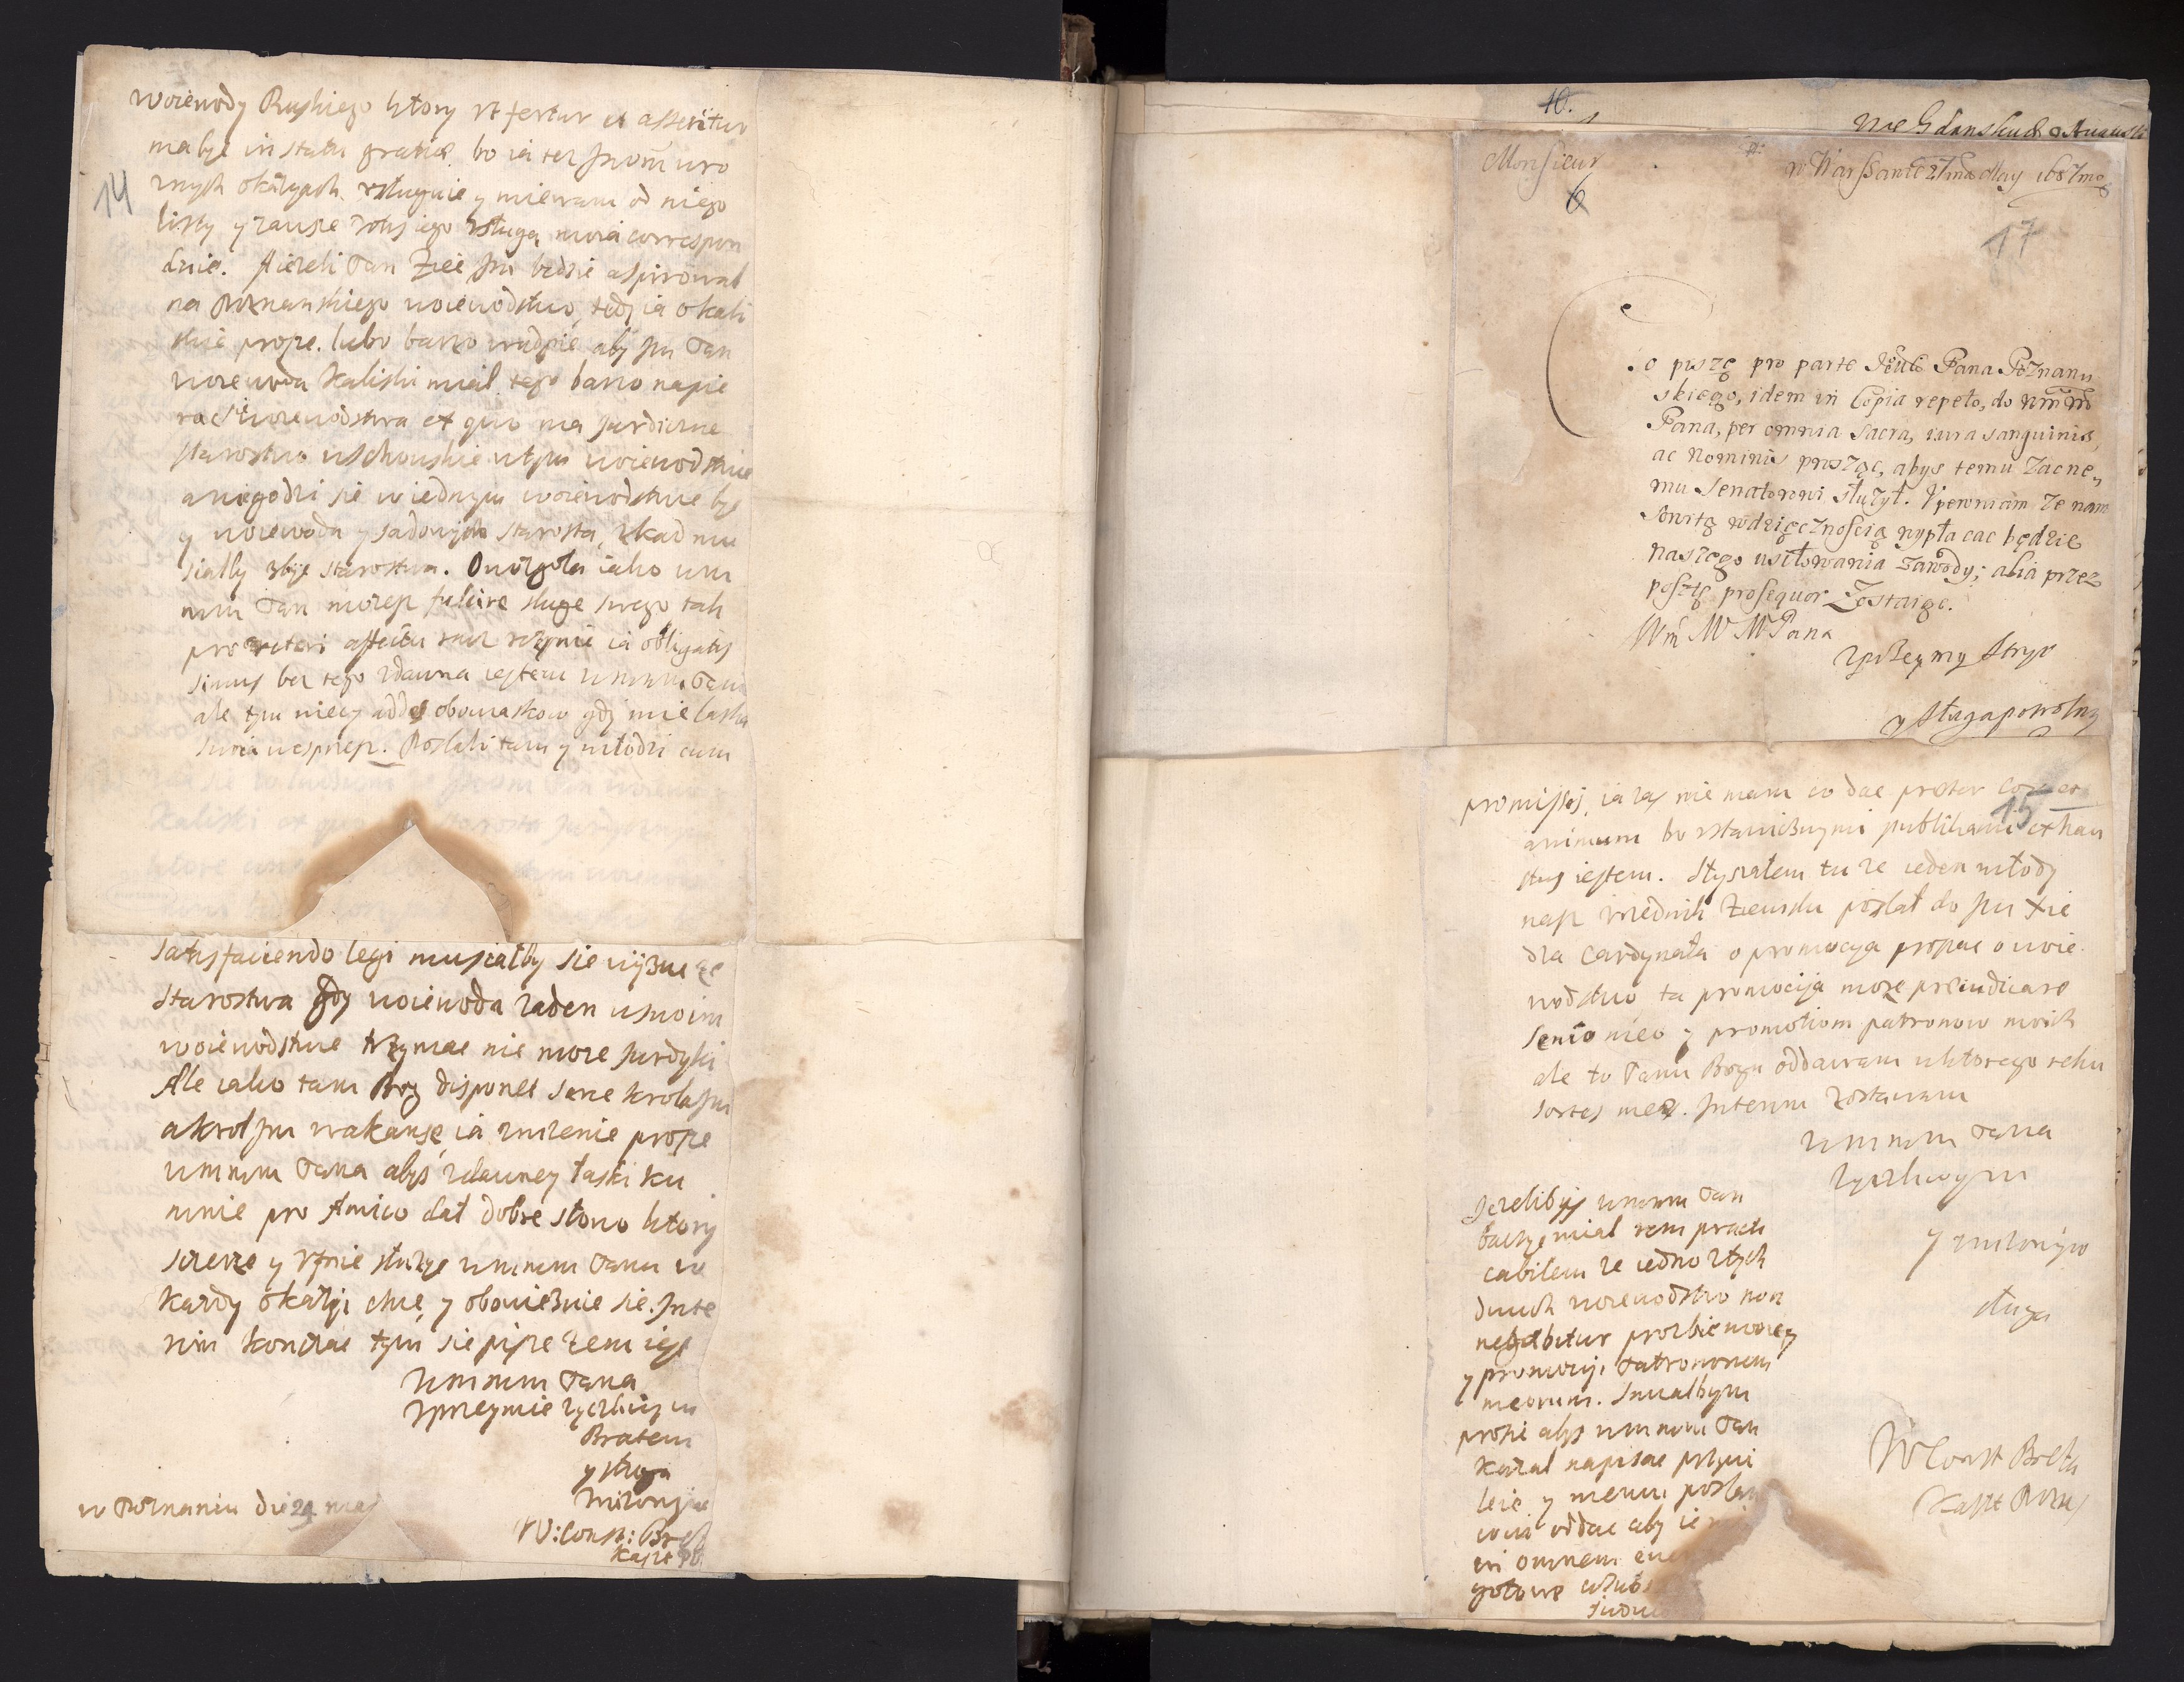 14
woiewody Ruskiego ktory vt fertur et asseritur
ma byc in statu gratiae. bo ia tez Jmom w ro
znych okazyach vsługuie y miewam od niego
listy y zausze zotuj iego vsługą moia correspon
duie. A iezeli Pan Zieć Jm bedzie aspirował
na Poznanskiego woiewodstwo, tedy ia o kali
skie prosze. lubo barzo wądpie aby Jm Pan
woiewoda Kaliski miał tego barzo napie
rac sie woiewodstwa ex quo ma Jurdiczne
starostwo wschouskie w tym woiewodstwie
a niegodzi sie w iednym woiewodstwie byc
y woiewodą y sądowym starostą, zkąd mu
siałby zbyc starostwa. Owozgoła iako wm
mm Pan mozesz fulcire sługe swego tak
proszę
affectu
simus bez tego zdawna iestem wmmm Panu
ale tym wiecy addes obowiaskow gdy mie łaską
swoią wesprzesz. Posłali tam y młodzi cum
satisfaciendo legi musiałby sie wyzuc ze
starostwa gdy woiewoda zaden w swoim
woiewodstwie trzymac nie moze Jurdyki
Ale iako tam Bog disponet serce krola Jm
a krol Jm wakanse, ia unizenie prosze
wmmm Pana abys zdawney łaski ku
mnie pro Amico dał dobre słowo ktory
szczerze y vfnie służyc wmmm Panu w
kazdy okazyi chce, y obowiezuie sie. Inte
rim koncząc tym sie pisze zem iest
Wmmm Pana
vprzeymie zyczliwym
Bratem
y sługą
vnizonym
W: Const: Brest
Kaszt
w Poznaniu die 24 maj
10.
we Gdansku 8 Augusti
Monsieur
6
w Warszawie 27ma May 1687mo
17
Co piszę pro parte Jeo Pana Poznanu
skiego, idem in Copia repeto, do wm mo
Pana, per omnia sacra, iura sanguinis,
ac Nominis prosząc, abys temu Zacne,,
mu Senatorowi służył. Vpewniam ze nam
sowitą wdzięcznoscią wypłacac będzie
naszego usiłowania zawody; alia przez
posztę prosequor Zostaige.
Wm M MPana
Vprzeymy Stryi
y Sługa powolny
15
promissis, ia zas nie mam co dac praeter cor et
animum bo vstawiznymi publikami exhau
stus iestem. Słyszałem tu ze ieden młody
nasz vrzednik Ziemski posłał do Jm Xie
dza Cardynała o promocya prosząc o woie
wodstwo ta promocija może praeiudicare
senio meo y promotiom patronow moich
ale to Panu Bogu oddawam w ktorego reku
sortes meae. Interim zostawam
wmmm Pana
zyczliwym
y vnizonym
sługą
W Const Brzth
Kaszt Pozn
Jezelibys wmmm Pan
baczyc miał rem practi
cabilem ze iedno z tych
dwuch woiewodstwo non
negabitur prozbie moiey
y promocyi Patronorum
meorum. Smiałbym
prosic abys wmmm Pan
kazał napisac przywi
leie y memu posłan
cowi oddac aby ie
in omnem euen
gotowe